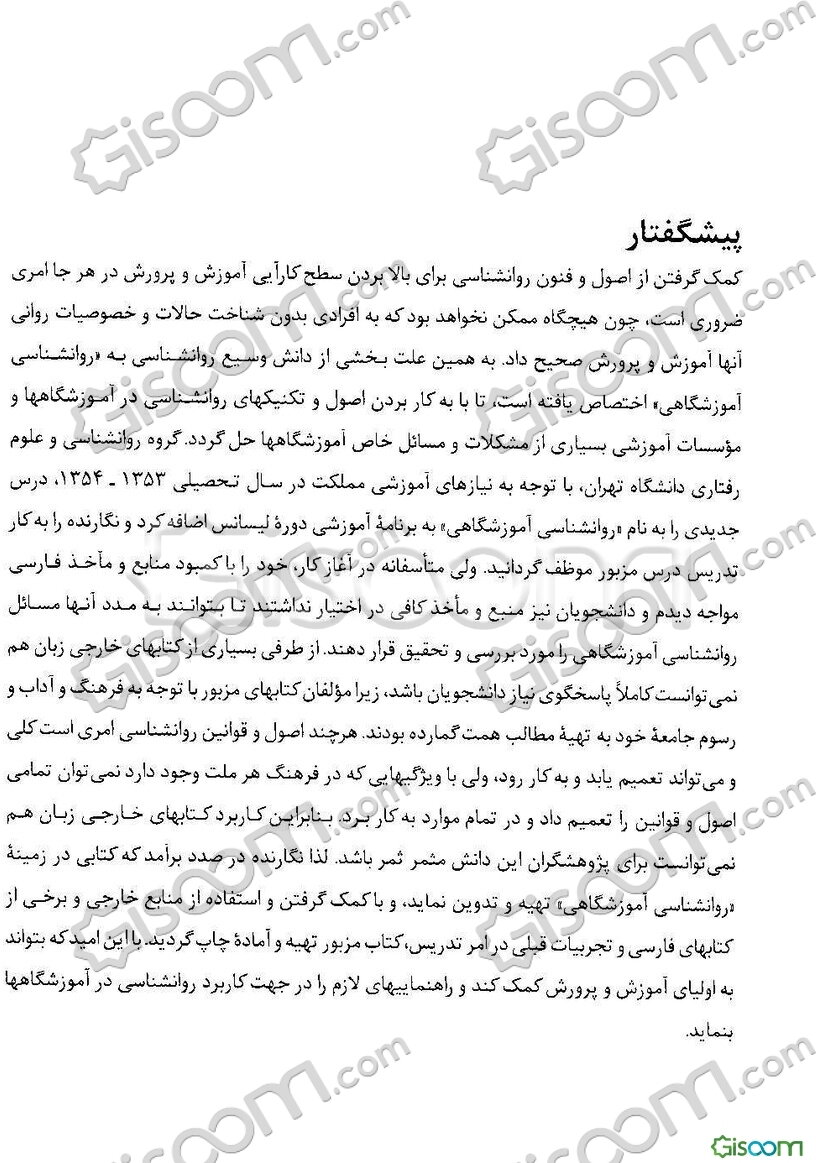 پیشگفتار
کمک گرفتن از اصول و فنون روانشناسی برای بالا بردن سطح کارآیی آموزش و پرورش در هر جا امری
ضروری است، چون هیچگاه ممکن نخواهد بود که به افرادی بدون شناخت حالات و خصوصیات روانی
آنها آموزش و پرورش صحیح داد. به همین علت بخشی از دانش وسیع روانشناسی به «روانشناسی
آموزشگاهی» اختصاص یافته است، تا با به کار بردن اصول و تکنیکهای روانشناسی در آموزشگاهها و
مؤسسات آموزشی بسیاری از مشکلات و مسائل خاص آموزشگاهها حل گردد. گروه روانشناسی و علوم
رفتاری دانشگاه تهران، با توجه به نیازهای آموزشی مملکت در سال تحصیلی ۱۳۵۳ ـ ۱۳۵۴، درس
جدیدی را به نام «روانشناسی آموزشگاهی» به برنامهٔ آموزشی دورهٔ لیسانس اضافه کرد و نگارنده را به کار
تدریس درس مزبور موظف گردانید. ولی متأسفانه در آغاز کار، خود را با کمبود منابع و مآخذ فارسی
مواجه دیدم و دانشجویان نیز منبع و مأخذ کافی در اختیار نداشتند تا بتوانند به مدد آنها مسائل
روانشناسی آموزشگاهی را مورد بررسی و تحقیق قرار دهند. از طرفی بسیاری از کتابهای خارجی زبان هم
نمی‌توانست کاملاً پاسخگوی نیاز دانشجویان باشد، زیرا مؤلفان کتابهای مزبور با توجه به فرهنگ و آداب و
رسوم جامعهٔ خود به تهیهٔ مطالب همت گمارده بودند. هرچند اصول و قوانین روانشناسی امری است کلی
و می‌تواند تعمیم یابد و به کار رود، ولی با ویژگیهایی که در فرهنگ هر ملت وجود دارد نمی‌توان تمامی
اصول و قوانین را تعمیم داد و در تمام موارد به کار برد. بنابراین کاربرد کتابهای خارجی زبان هم
نمی‌توانست برای پژوهشگران این دانش مثمر ثمر باشد. لذا نگارنده در صدد برآمد که کتابی در زمینهٔ
«روانشناسی آموزشگاهی» تهیه و تدوین نماید، و با کمک گرفتن و استفاده از منابع خارجی و برخی از
کتابهای فارسی و تجربیات قبلی در امر تدریس، کتاب مزبور تهیه و آمادهٔ چاپ گردید. با این امید که بتواند
به اولیای آموزش و پرورش کمک کند و راهنماییهای لازم را در جهت کاربرد روانشناسی در آموزشگاهها
بنماید.
Gisoom